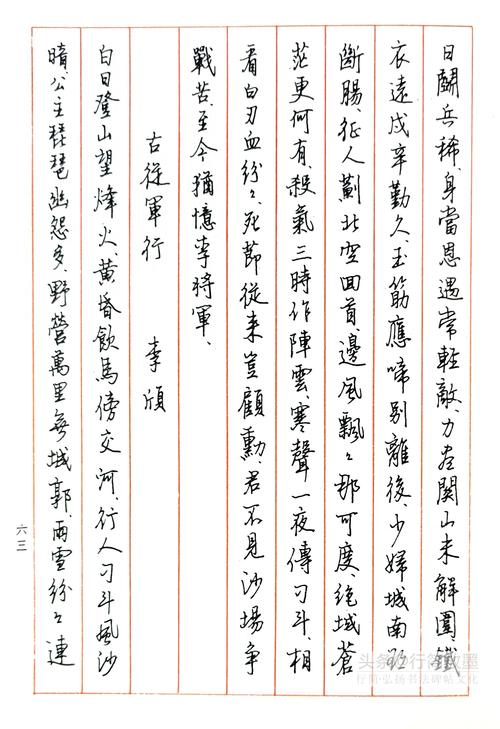 日鬭兵稀、身當恩遇常輕敵、力盡關山未解圍、鐵
衣遠戍辛勤久、玉筯應啼別離後、少婦城南欲
斷腸、征人薊北空回首、邊風飄々那可度、絕域蒼
茫更何有、殺氣三時作陣雲、寒聲一夜傳刁斗、相
看白刃血紛々、死節從来豈顧勳、君不見沙場争
戰苦、至今猶憶李將軍、
古從軍行 李頎
白日登山望烽火、黃昏飲馬傍交河、行人刁斗風沙
暗、公主琵琶幽怨多、野營萬里無城郭、雨雪紛々連
六三
头条@行简墨
行简·弘扬书法碑帖文化